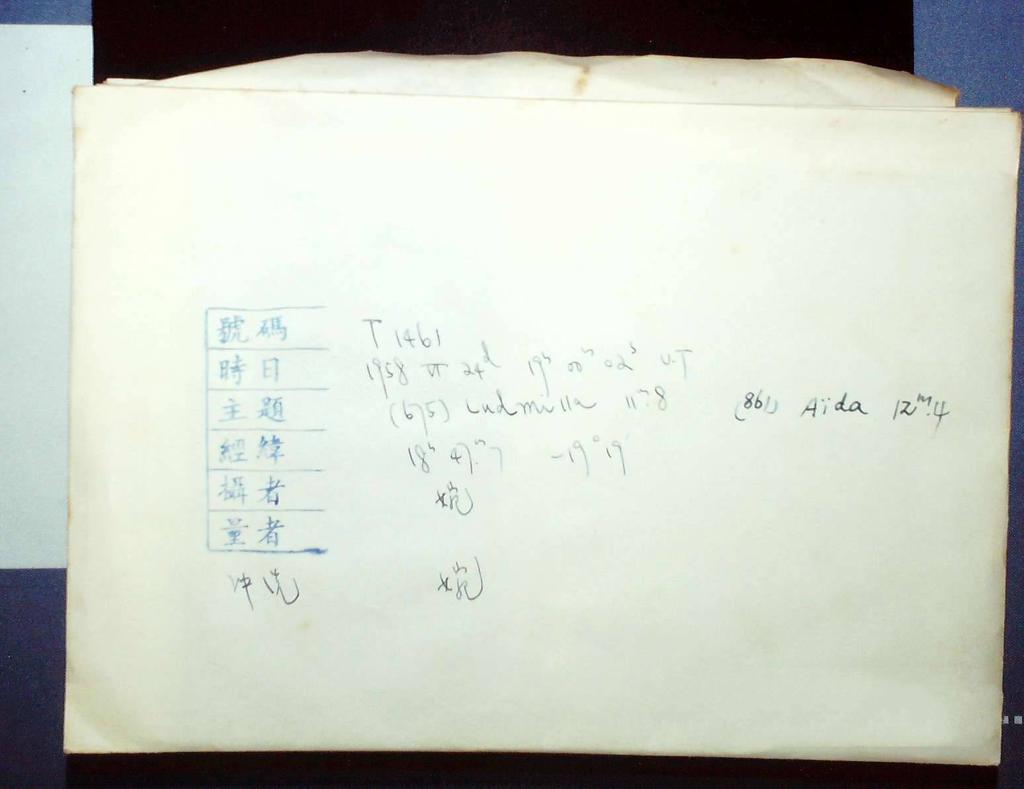 號碼 T 1461
時日 1958 VI 24ᵈ 19ʰ 00ᵐ 02ˢ U.T
主題 (675) Ludmilla 11ᵐ.8 (861) Aïda 12ᵐ.4
經緯 18ʰ 47ᵐ.7 -19°19′
攝者 婉
量者
冲洗 婉